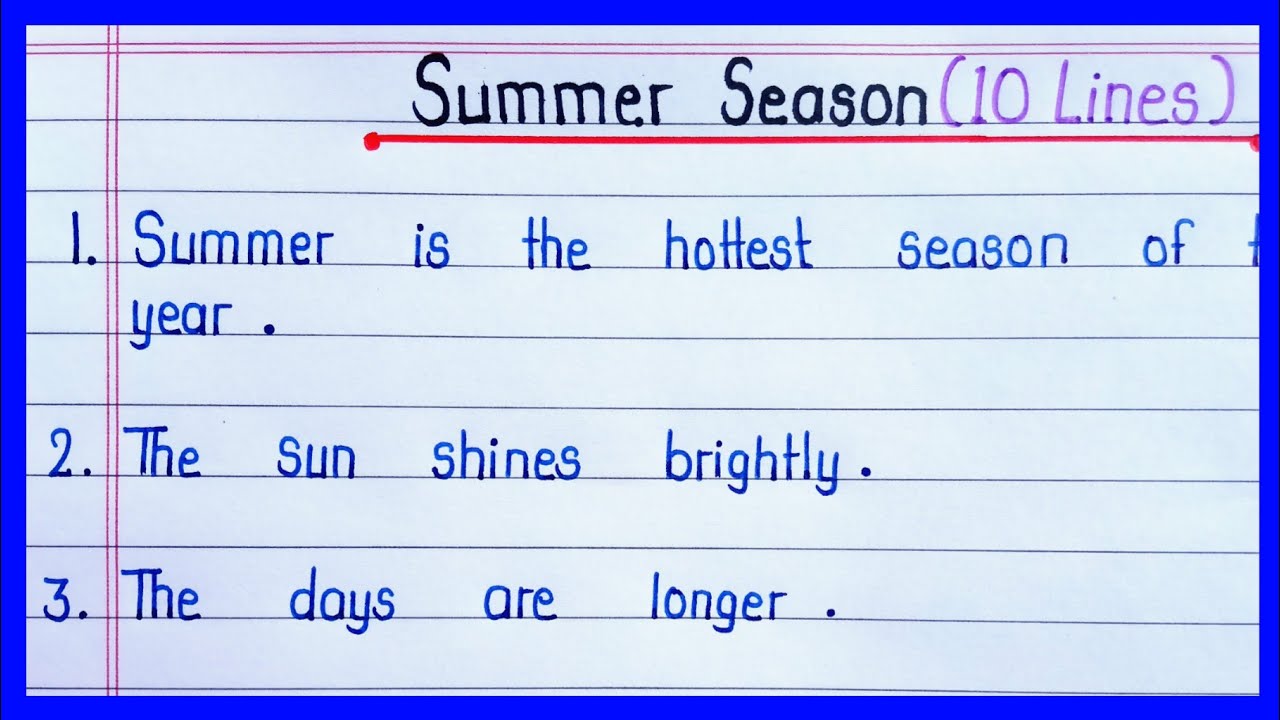 Summer Season (10 Lines)
1. Summer is the hottest season of
year.
2. The sun shines brightly.
3. The days are longer.